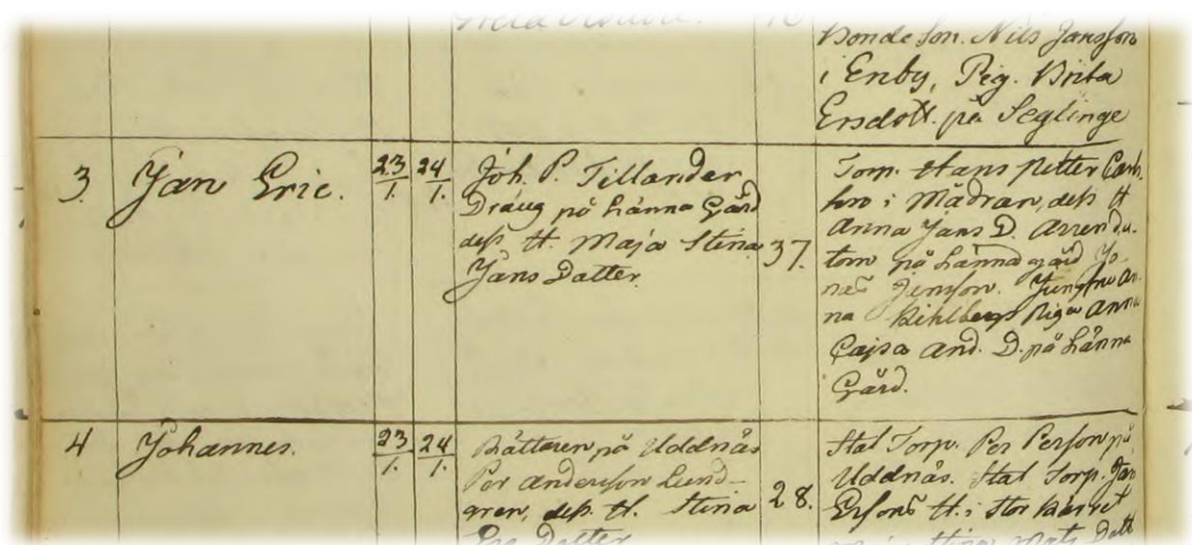 Bonde Son. Nils Jansson
i Enby, Pig. Brita
Ersdott. på Seglinge
3 Jan Eric. 23/1. 24/1.
Joh. P. Tillander
Dräng på Länna Gård
dess H. Maja Stina
Jans Datter.
37.
Torp. Hans Petter
i Mädran, dess H
Anna Jans D. Arrenda-
torn på Länna gård Jo-
nas Jonsson. Jungfru An-
na Kihlberg Piga Anna
Cajsa And. D. på Länna
Gård.
4 Johannes. 23/1. 24/1.
Rättaren på Uddnäs
Per Andersson Lund-
gren, dess H. Stina
Ers Datter
28.
Stat Torp. Per Persson på
Uddnäs. Stat Torp. Jan
Ersons H. i Stor
Stina Mats Dott